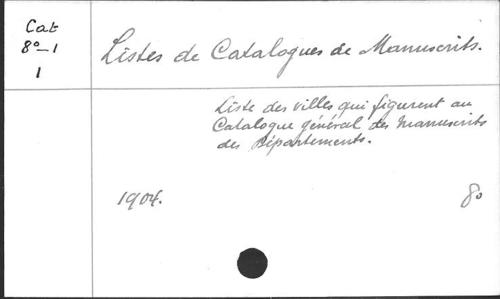 Cat
8°-1
1
Listes de Catalogues de Manuscrits.
Liste des villes qui figurent au
Catalogue général des Manuscrits
des Départements.
1904.
8°